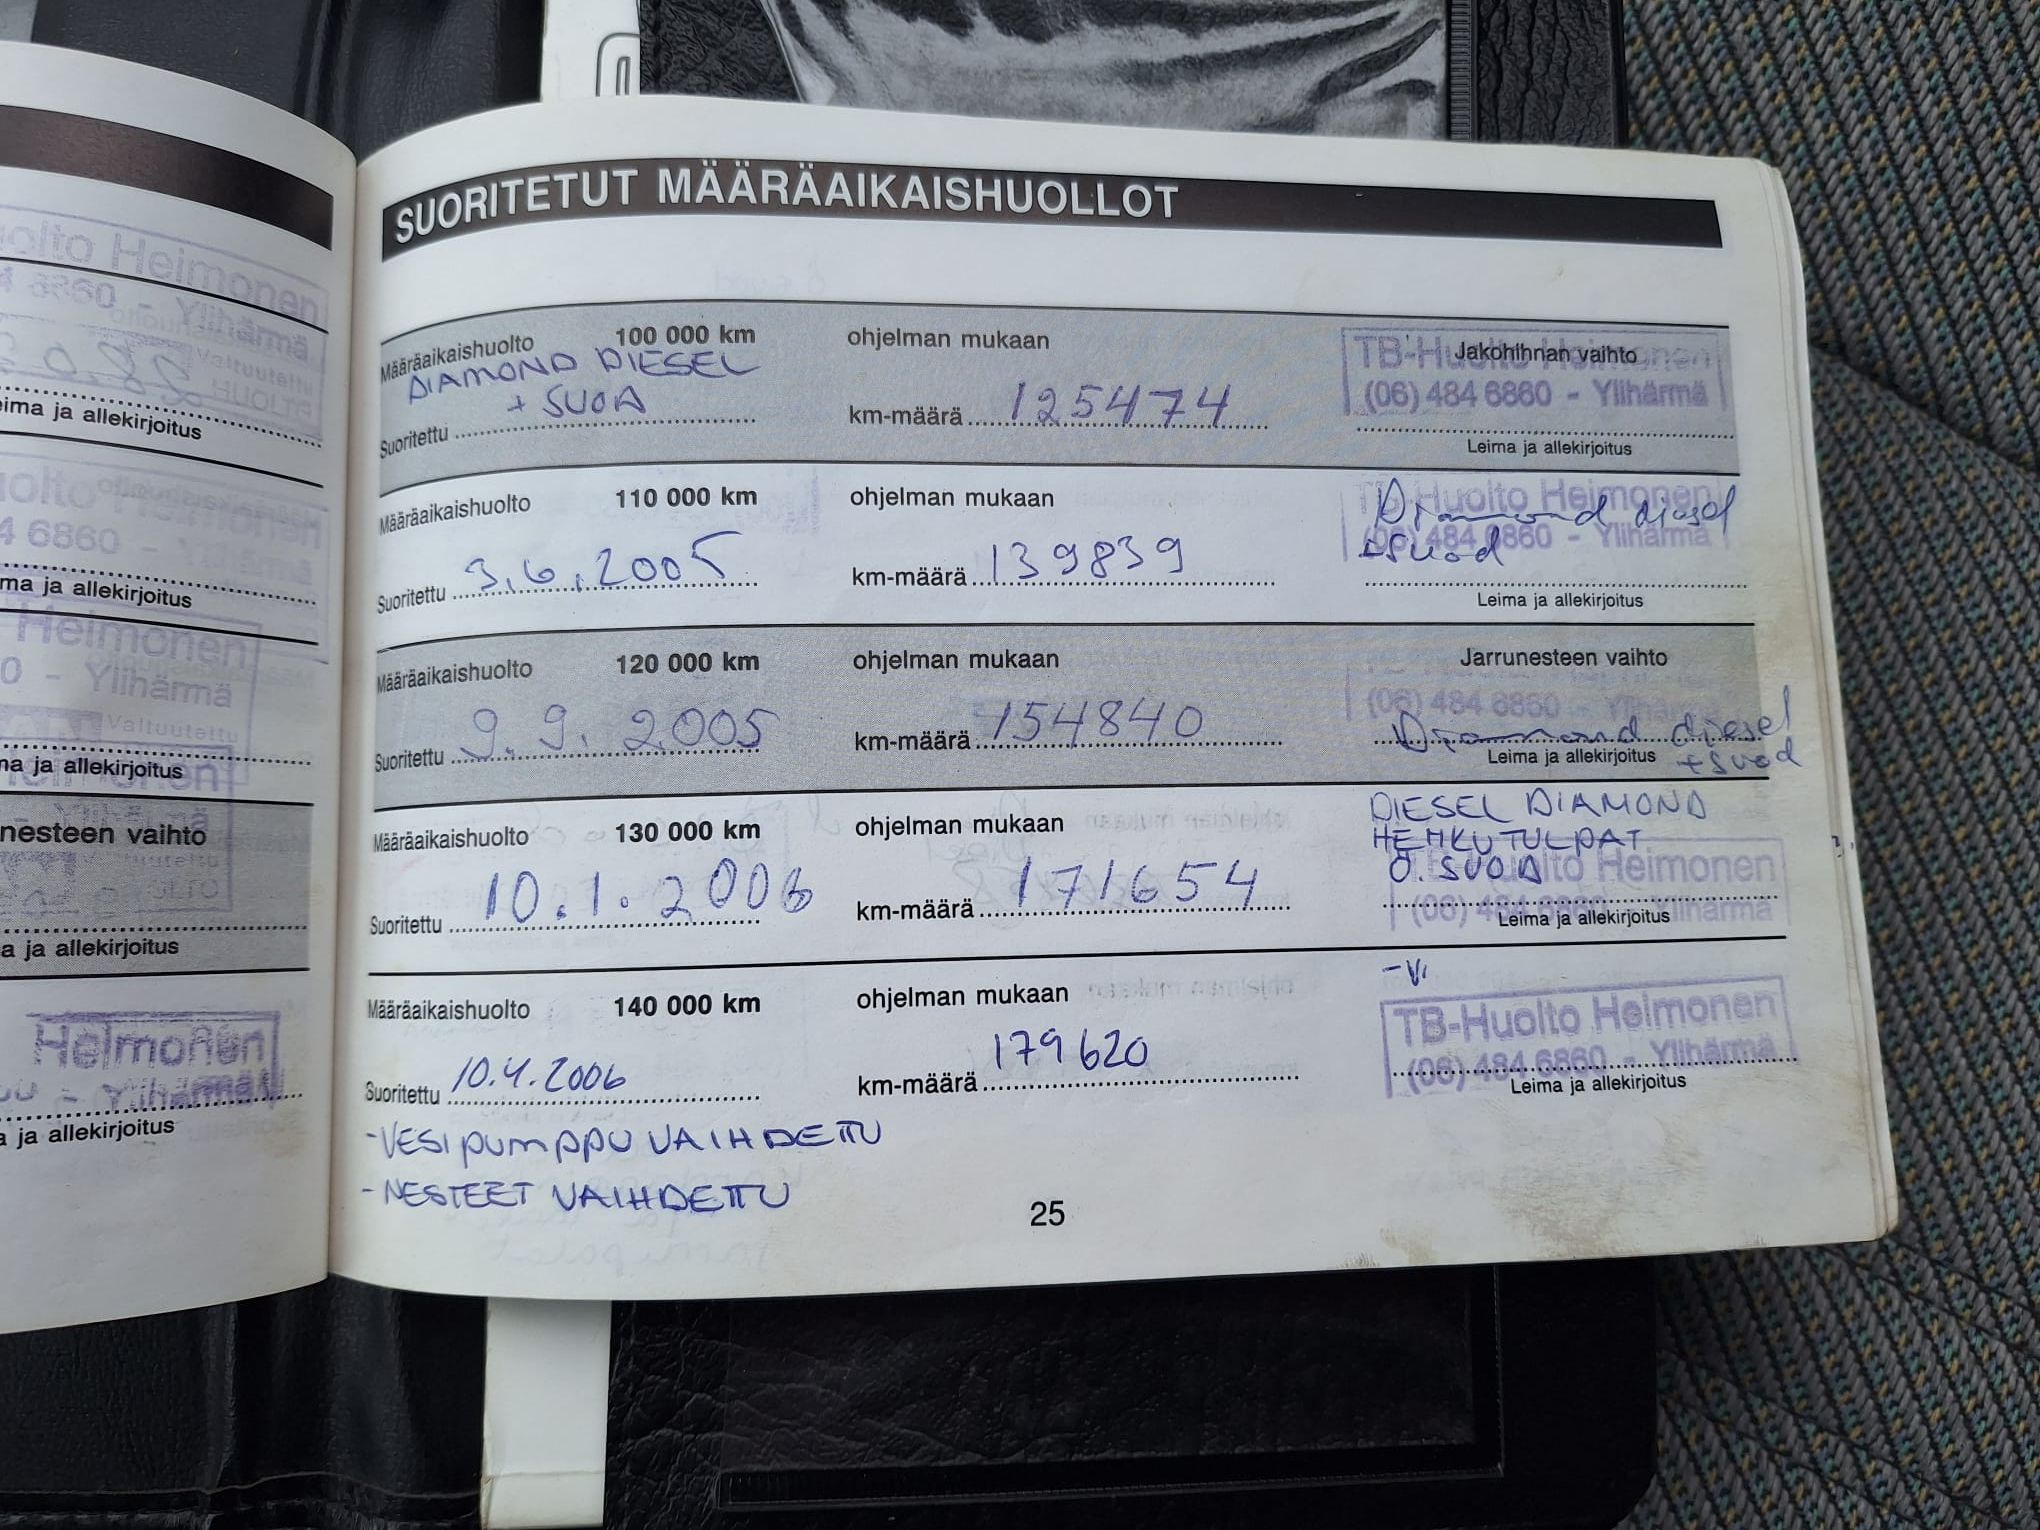 SUORITETUT MÄÄRÄAIKAISHUOLLOT
Määräaikaishuolto 100 000 km ohjelman mukaan Jakohihnan vaihto
DIAMOND DIESEL
+ SUOD
TB-Huolto Heimonen
(06) 484 6860 - Ylihärmä
Suoritettu km-määrä 125474
Leima ja allekirjoitus
Määräaikaishuolto 110 000 km ohjelman mukaan
TB-Huolto Heimonen
(06) 484 6860 - Ylihärmä
Diamond diesel
+ suod
Suoritettu 3.6.2005 km-määrä 139839
Leima ja allekirjoitus
Määräaikaishuolto 120 000 km ohjelman mukaan Jarrunesteen vaihto
(06) 484 6860 - Ylihärmä
Suoritettu 9.9.2005 km-määrä 154840
Diamond diesel
+ suod
Leima ja allekirjoitus
DIESEL DIAMOND
Määräaikaishuolto 130 000 km ohjelman mukaan
HEHKUTULPAT
Ö. SUOD
TB-Huolto Heimonen
(06) 484 6860 - Ylihärmä
Suoritettu 10.1.2006 km-määrä 171654
Leima ja allekirjoitus
Määräaikaishuolto 140 000 km ohjelman mukaan
TB-Huolto Heimonen
(06) 484 6860 - Ylihärmä
Suoritettu 10.4.2006 km-määrä 179620
Leima ja allekirjoitus
- VESIPUMPPU VAIHDETTU
- NESTEET VAIHDETTU
25
olto Heimonen
4 6860 - Ylihärmä
eima ja allekirjoitus
4 6860 -
ma ja allekirjoitus
Heimonen
0 - Ylihärmä
Valtuutettu
na ja allekirjoitus
nesteen vaihto
a ja allekirjoitus
Heimonen
Ylihärmä
a ja allekirjoitus